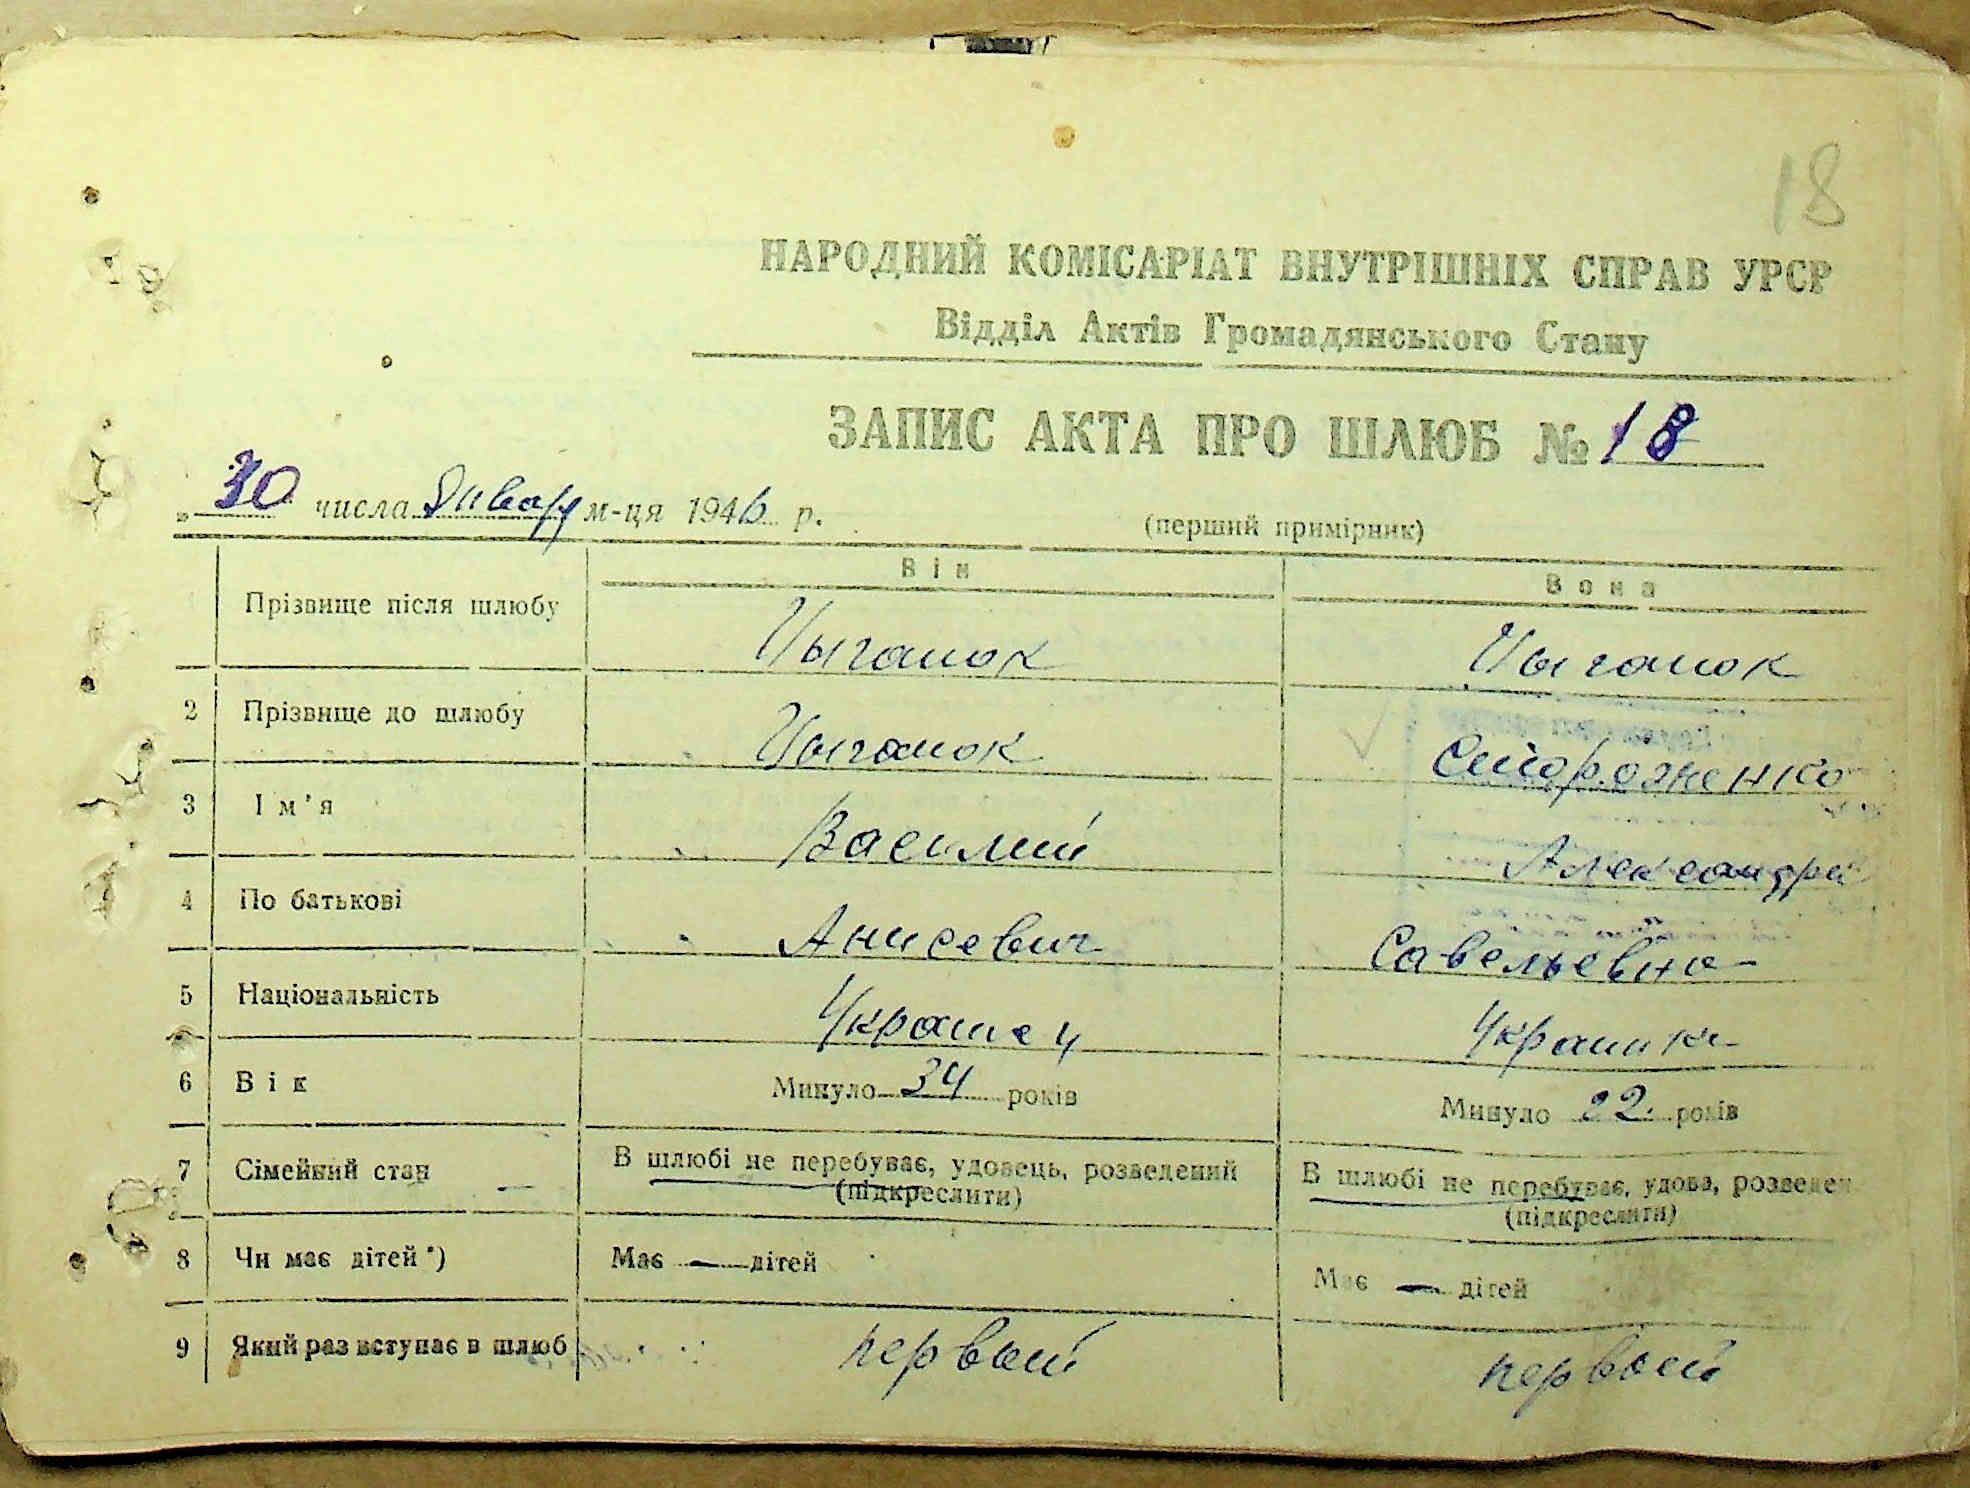 18
НАРОДНИЙ КОМІСАРІАТ ВНУТРІШНІХ СПРАВ УРСР
Відділ Актів Громадянського Стану
ЗАПИС АКТА ПРО ШЛЮБ № 18
„ 30 числа Январ м-ця 1946 р.
(перший примірник)
Він Вона
Прізвище після шлюбу Цыганок Цыганок
2 Прізвище до шлюбу Цыганок Сторженко
3 Ім'я Василий Александра
4 По батькові Анисевич Савельевна
5 Національність Украинец Украинка
6 Вік Минуло 34 років Минуло 22 років
7 Сімейний стан В шлюбі не перебуває, удовець, розведений В шлюбі не перебуває, удова, розведен
(підкреслити) (підкреслити)
8 Чи має дітей *) Має — дітей Має — дітей
9 Який раз вступає в шлюб первый первый